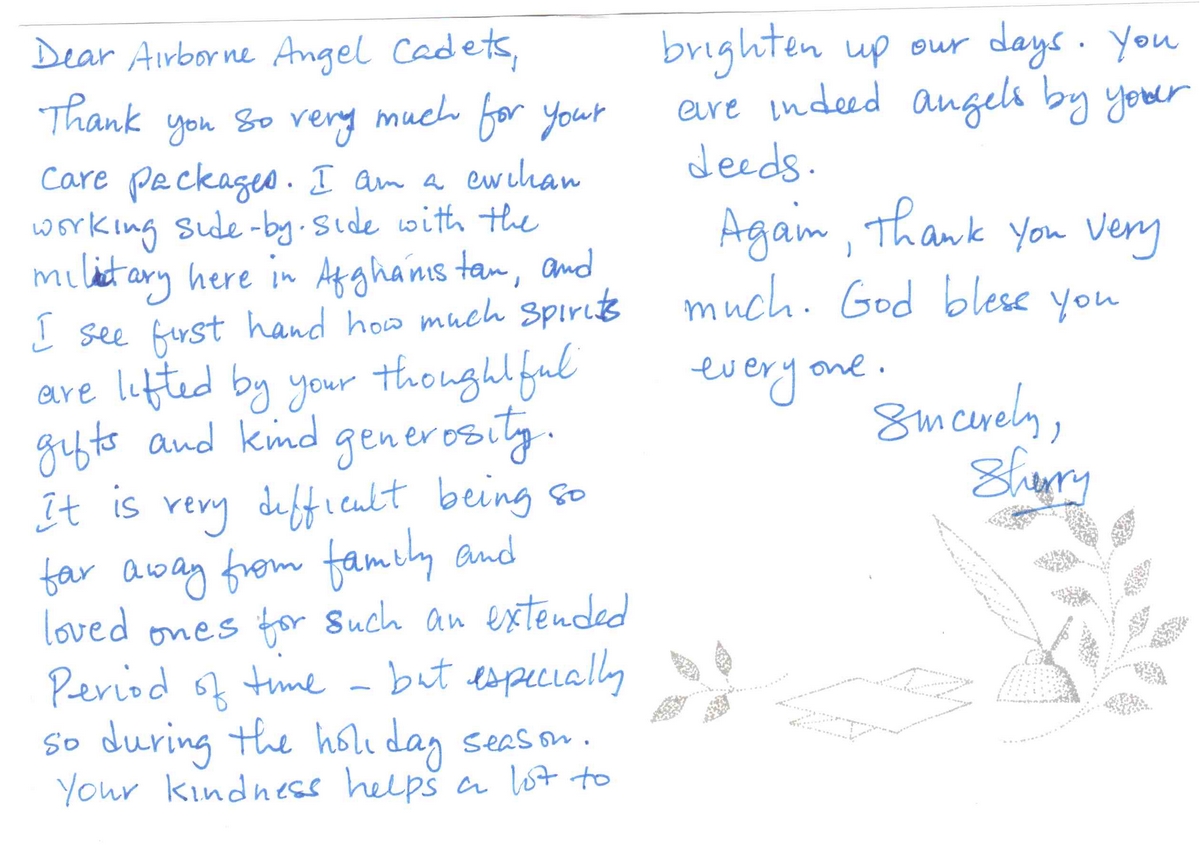 Dear Airborne Angel Cadets,
Thank you so very much for your
care packages. I am a civilian
working side-by-side with the
military here in Afghanistan, and
I see first hand how much spirits
are lifted by your thoughtful
gifts and kind generosity.
It is very difficult being so
far away from family and
loved ones for such an extended
Period of time - but especially
so during the holiday season.
Your kindness helps a lot to
brighten up our days. You
are indeed angels by your
deeds.
Again, thank you very
much. God bless you
everyone.
Sincerely,
Sherry